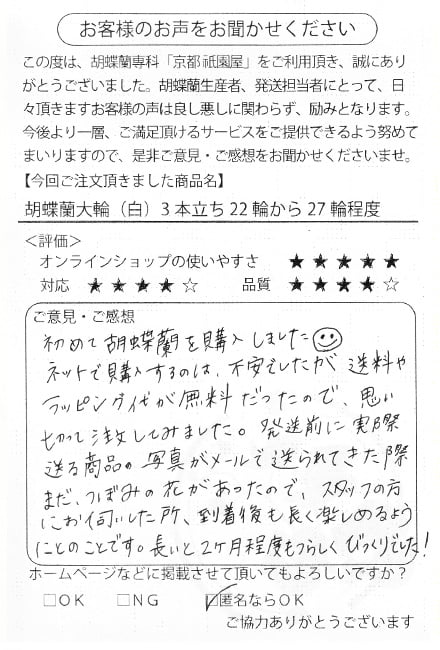 お客様のお声をお聞かせください
この度は、胡蝶蘭専科「京都祇園屋」をご利用頂き、誠にあり
がとうございました。胡蝶蘭生産者、発送担当者にとって、日
々頂きますお客様の声は良し悪しに関わらず、励みとなります。
今後より一層、ご満足頂けるサービスをご提供できるよう努めて
まいりますので、是非ご意見・ご感想をお聞かせくださいませ。
【今回ご注文頂きました商品名】
胡蝶蘭大輪（白）3本立ち22輪から27輪程度
＜評価＞
オンラインショップの使いやすさ ★★★★★
対応 ★★★★☆ 品質 ★★★★☆
ご意見・ご感想
初めて胡蝶蘭を購入しました☺
ネットで購入するのは、不安でしたが送料や
ラッピング代が無料だったので、思い
切って注文してみました。発送前に実際
送る商品の写真がメールで送られてきた際
まだ、つぼみの花があったので、スタッフの方
にお伺いした所、到着後も長く楽しめるよう
にとのことです。長いと2ケ月程度もつらしくびっくりでした!
ホームページなどに掲載させて頂いてもよろしいですか？
□OK □NG ☑匿名ならOK
ご協力ありがとうございます